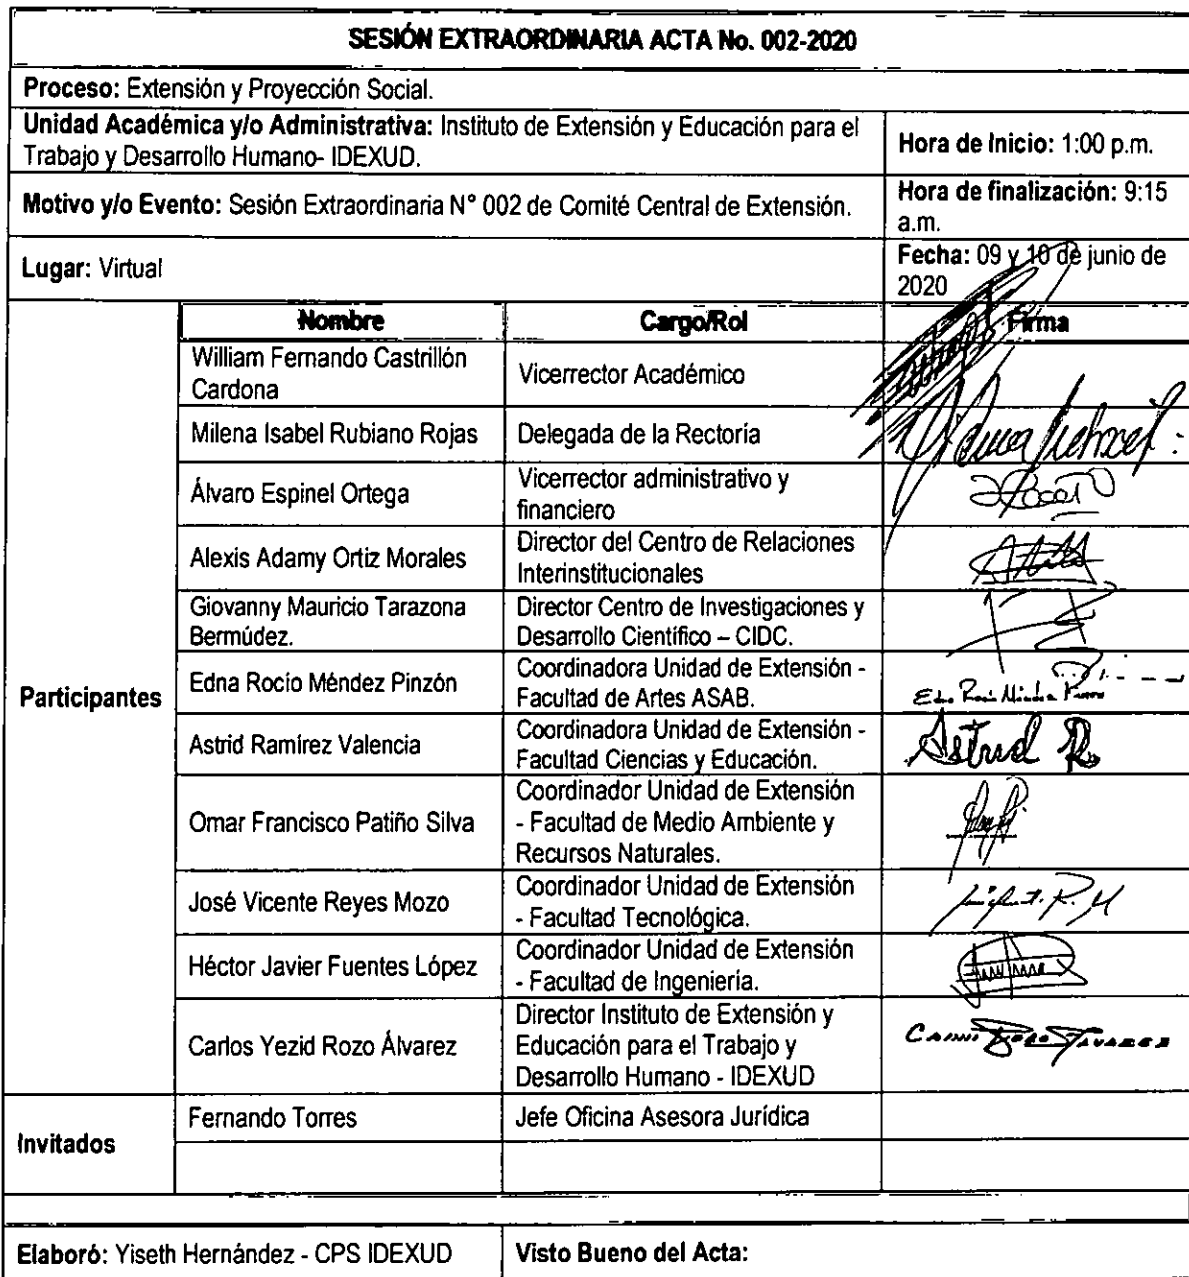 SESIÓN EXTRAORDINARIA ACTA No. 002-2020
Proceso: Extensión y Proyección Social.
Unidad Académica y/o Administrativa: Instituto de Extensión y Educación para el
Trabajo y Desarrollo Humano- IDEXUD.
Hora de Inicio: 1:00 p.m.
Motivo y/o Evento: Sesión Extraordinaria N° 002 de Comité Central de Extensión.
Hora de finalización: 9:15
a.m.
Lugar: Virtual
Fecha: 09 y 10 de junio de
2020
Participantes
Nombre
Cargo/Rol
Firma
William Fernando Castrillón
Cardona
Vicerrector Académico
Milena Isabel Rubiano Rojas
Delegada de la Rectoría
Álvaro Espinel Ortega
Vicerrector administrativo y
financiero
Alexis Adamy Ortiz Morales
Director del Centro de Relaciones
Interinstitucionales
Giovanny Mauricio Tarazona
Bermúdez.
Director Centro de Investigaciones y
Desarrollo Científico – CIDC.
Edna Rocío Méndez Pinzón
Coordinadora Unidad de Extensión -
Facultad de Artes ASAB.
Astrid Ramírez Valencia
Coordinadora Unidad de Extensión -
Facultad Ciencias y Educación.
Astrid R.
Omar Francisco Patiño Silva
Coordinador Unidad de Extensión
- Facultad de Medio Ambiente y
Recursos Naturales.
José Vicente Reyes Mozo
Coordinador Unidad de Extensión
- Facultad Tecnológica.
Héctor Javier Fuentes López
Coordinador Unidad de Extensión
- Facultad de Ingeniería.
Carlos Yezid Rozo Álvarez
Director Instituto de Extensión y
Educación para el Trabajo y
Desarrollo Humano - IDEXUD
Invitados
Fernando Torres
Jefe Oficina Asesora Jurídica
Elaboró: Yiseth Hernández - CPS IDEXUD
Visto Bueno del Acta: